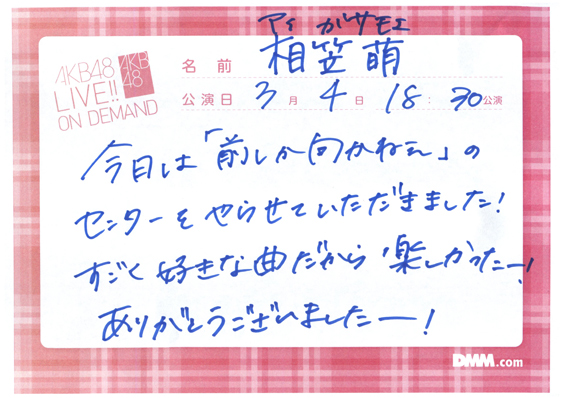 アイ がサ モエ
AKB48
LIVE!!
ON DEMAND
AKB
48
名前 相笠萌
公演日 3月 4日 18:30公演
今日は「前しか向かねえ」の
センターをやらせていただきました!
すごく好きな曲だから楽しかったー!
ありがとうございましたー!
DMM.com